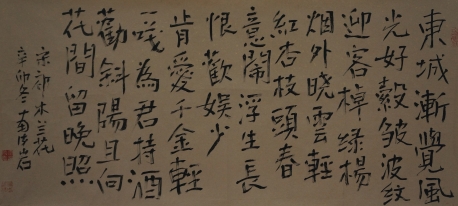 東城漸覺風
光好縠皺波紋
迎客棹綠楊
烟外曉雲輕
紅杏枝頭春
意鬧浮生長
恨歡娛少
肯愛千金輕
一咲為君持酒
勸斜陽且向
花間留晚照
宋祁木兰花
辛卯冬